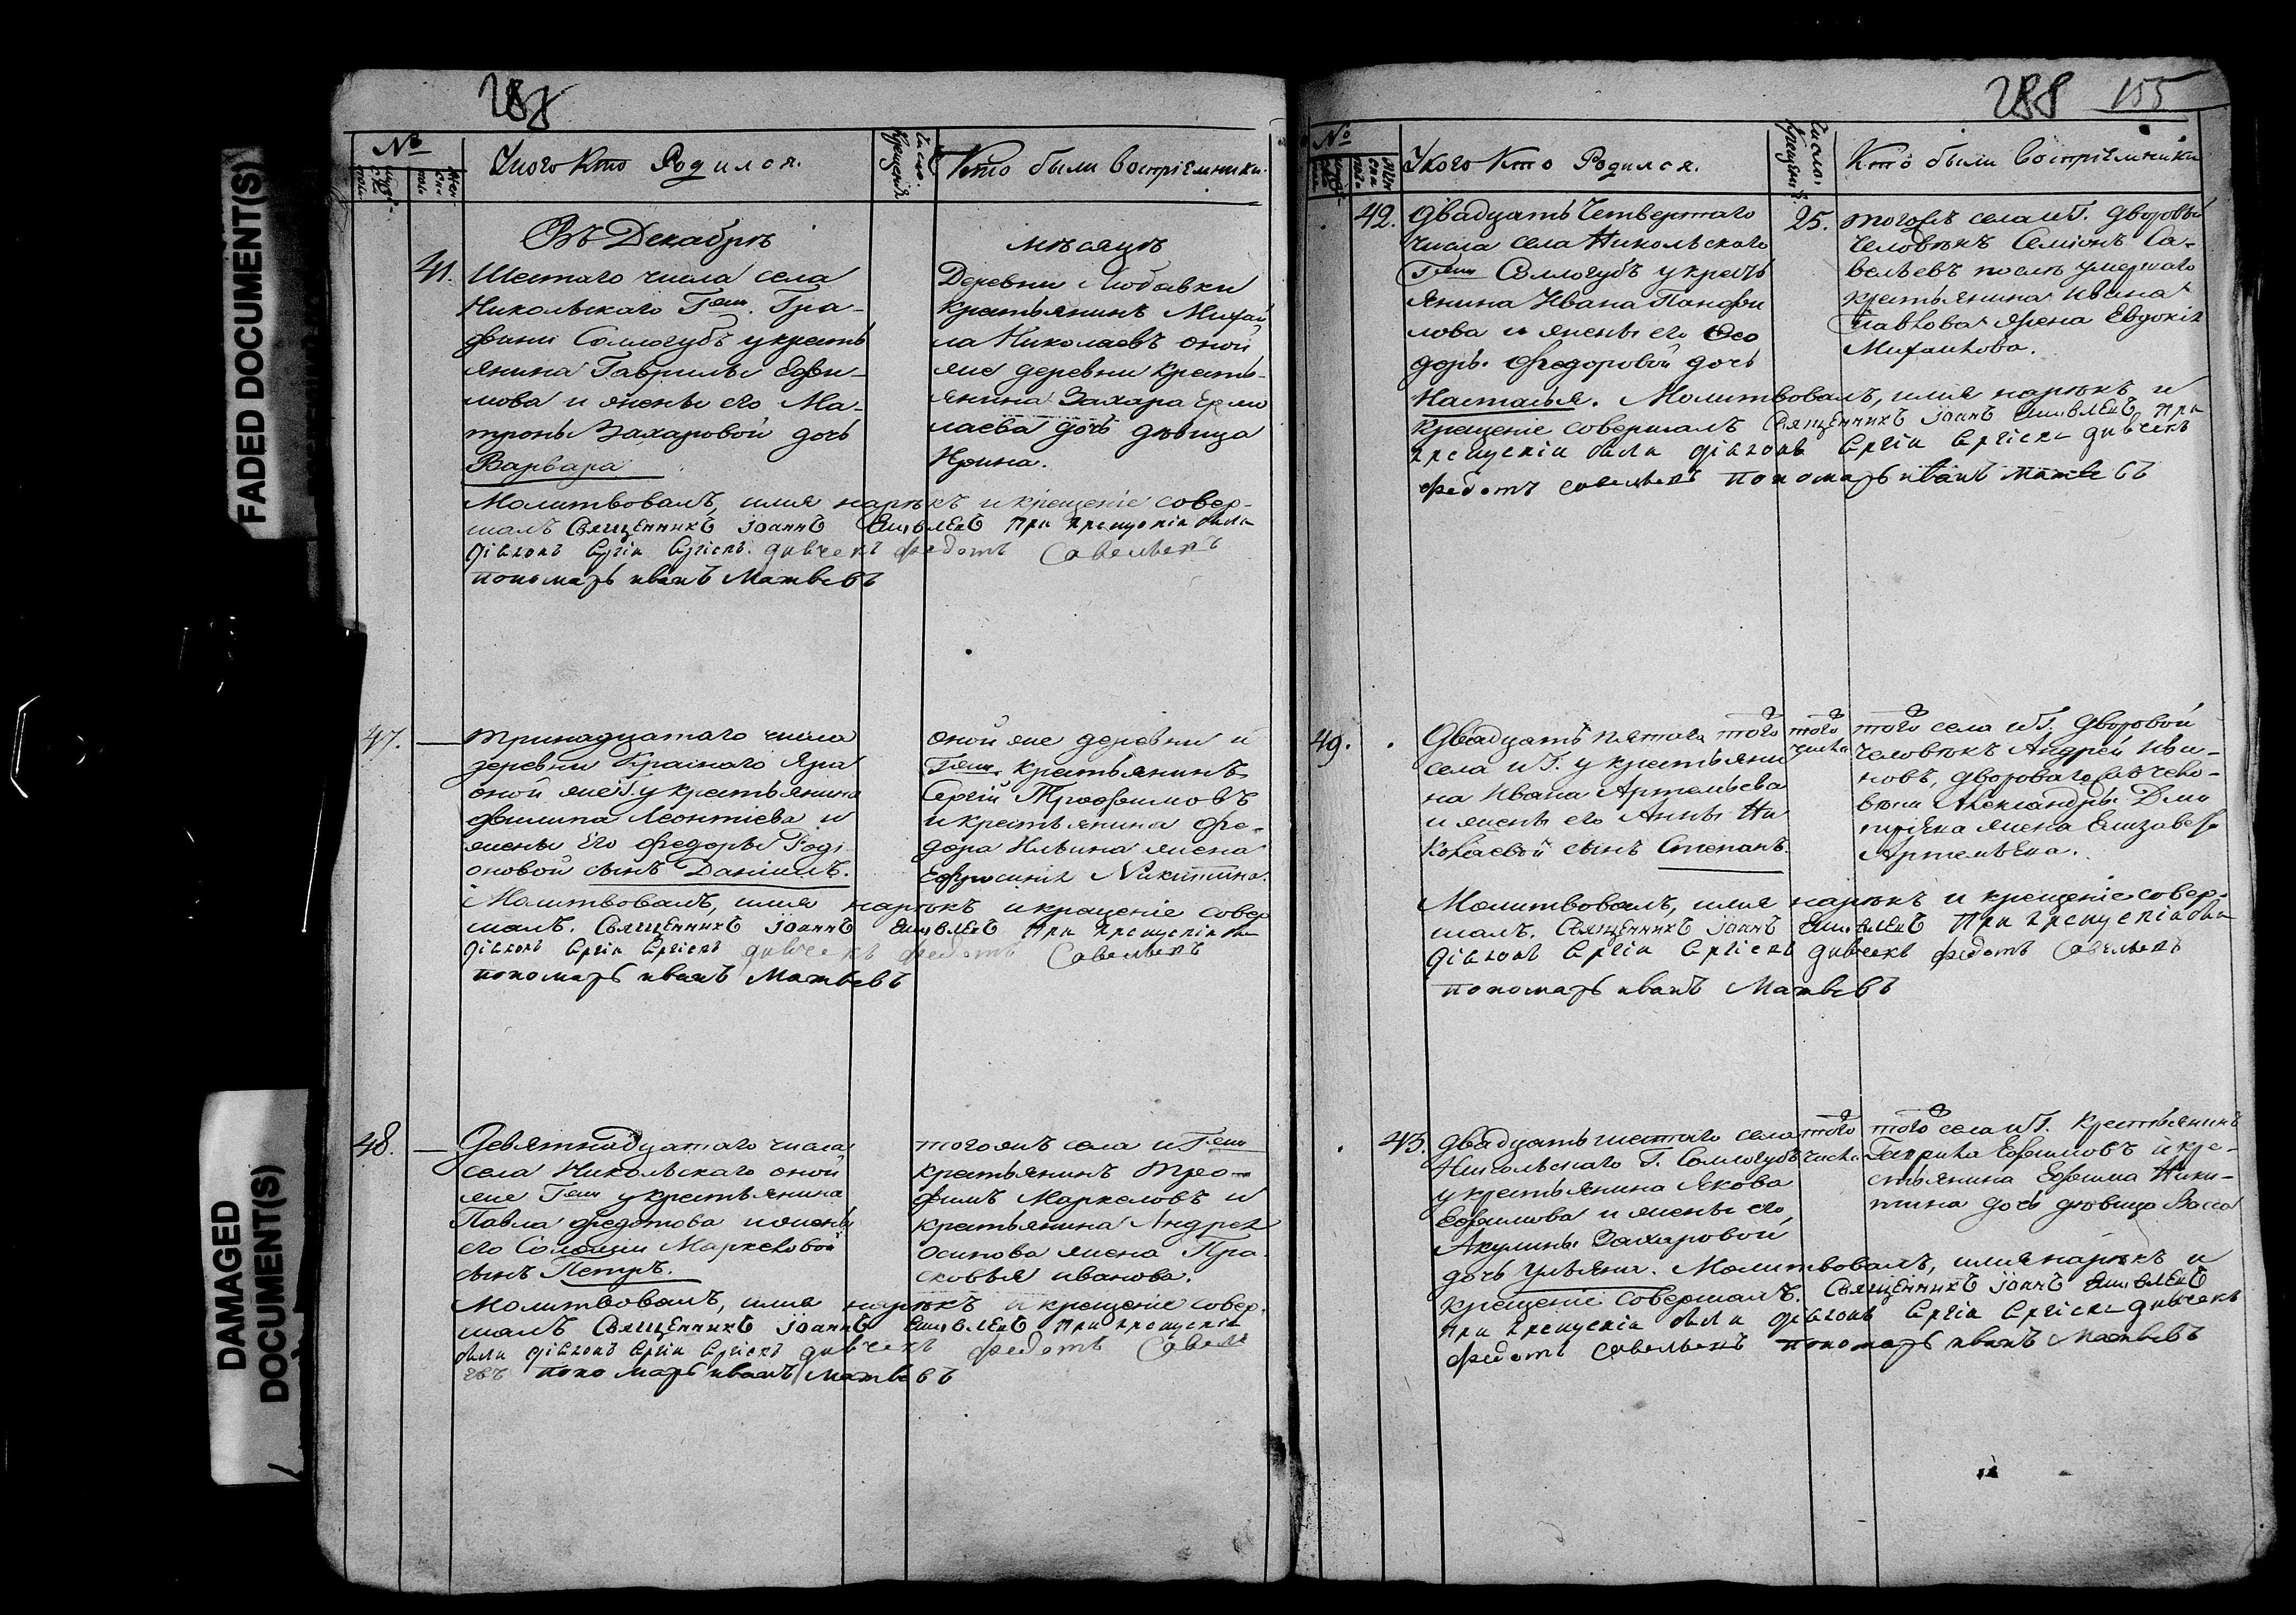 FADED DOCUMENT(S)
DAMAGED
DOCUMENT(S)
288
№
мужеска полу
женска полу
У кого Кто Родился.
Число крещенія
Кто были воспріемники.
Въ Декабрѣ
мѣсяцѣ
41.
Шестаго числа села
Никольскаго Г-жи. Гра-
фини Соллогубъ у кресть
янина Гаврилы Ефи-
мова и жены его Ма-
троны Захаровой дочь
Варвара
Деревни Любавки
Крестьянинъ Михай
ла Николаевъ оной
же деревни кресть-
янина Захара Ермо
лаева дочь дѣвица
Ирина.
Молитвовалъ, имя нарѣкъ и крещеніе совер-
шалъ Священникъ Іоаннъ При крещеніи были
діаконъ Сергіи Сергіевъ дьячекъ Федотъ Савельевъ
пономарь иванъ Матвѣевъ
47.
тринадцатаго числа
деревни Краснаго Яра
оной же Г. у крестьянина
филипа Леонтіева и
жены его Федоры Роді
оновой сынъ Даніилъ.
оной же деревни и
Г-жи крестьянинъ
Сергій Трофимовъ
и крестьянина Фе-
дора Ильина жена
Ефросинія Никитина.
Молитвовалъ, имя нарѣкъ и крещеніе совер
шалъ. Священникъ Іоаннъ При крещеніи были
діаконъ Сергіи Сергіевъ дьячекъ Федотъ Савельевъ
пономарь иванъ Матвѣевъ
48.
Девятнадцатаго числа
села Никольскаго оной
же Г-жи у крестьянина
Павла Федотова и жены
его Соломіи Маркеловой
сынъ Петръ.
тогожъ села и Г-жи
крестьянинъ Тро-
фимъ Маркеловъ и
крестьянина Андрея
Осипова жена Пра-
сковья иванова.
Молитвовалъ, имя нарѣкъ и крещеніе совер-
шалъ Священникъ Іоаннъ При крещеніи
были діаконъ Сергіи Сергіевъ дьячекъ Федотъ Савель
евъ пономарь иванъ Матвѣевъ
288 155
№
мужеска полу
женска полу
У кого Кто Родился.
Число крещенія
Кто были воспріемники
42.
Двадцать Четвертаго
числа села Никольскаго
Г-жи Соллогубъ у кресть
янина Ивана Панфи
лова и жены его Ѳео
доры Федоровой дочь
25.
тогожъ села и Г. Дворовый
человѣкъ Семіонъ Са-
вельевъ послѣ умершаго
крестьянина Ивана
Павлова жена Евдокія
Михаилова.
Насталья. Молитвовалъ, имя нарѣкъ и
крещеніе совершалъ Священникъ Іоаннъ При
крещеніи были діаконъ Сергіи Сергіевъ дьячекъ
Федотъ савельевъ пономарь иванъ Матвѣевъ
49.
Двадцать пятаго того
села и Г. у крестьяни
на Ивана Артемьева
и жены его Анны Ни
колаевой сынъ Степанъ.
того числа
того села и Г. Дворовой
человѣкъ Андрей Ива-
новъ, двороваго человѣ-
Александры Дми
тріева жена Елизавета
Артемьева.
Молитвовалъ, имя нарѣкъ и крещеніе совер-
шалъ. Священникъ Іоаннъ При крещеніи были
діаконъ Сергіи Сергіевъ дьячекъ Федотъ Савельевъ
пономарь иванъ Матвѣевъ
43.
двадцать шестаго села
Никольскаго Г. Соллогубъ
у крестьянина Якова
Ефимова и жены его
Акулины Захаровой
того числа
того села и Г. Крестьянинъ
Гаврила Ефимовъ и кре-
стьянина Ефима Ники-
тина дочь дѣвица Васса
дочь Ульяна. Молитвовалъ, имя нарѣкъ и
крещеніе совершалъ. Священникъ Іоаннъ
При крещеніи были діаконъ Сергіи Сергіевъ дьячекъ
Федотъ Савельевъ пономарь иванъ Матвѣевъ